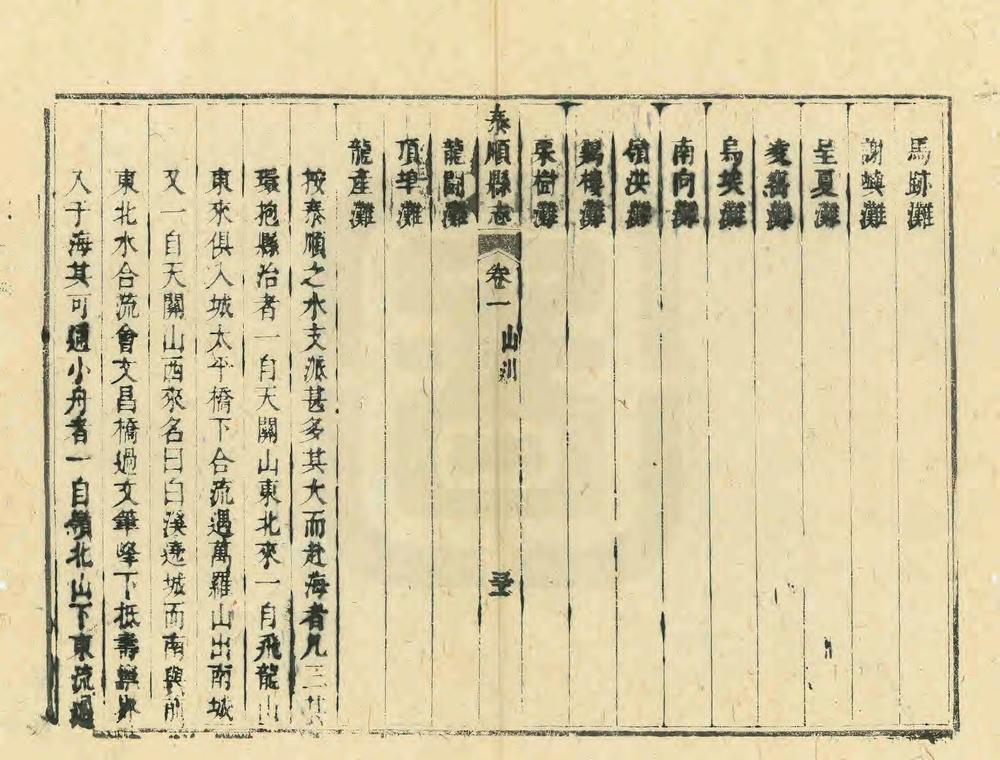 馬跡灘
謝墺灘
呈夏灘
灘
烏埃灘
南向灘
嶺洪灘
鷄樓灘
渠樹灘
泰順縣志 卷一 山川
龍鬪灘
頂埠灘
龍產灘
按泰順之水支派甚多其大而赴海者凡三其
環抱縣治者一自天關山東北來一自飛龍山
東來俱入城太平橋下合流遇萬羅山出南城
又一自天關山西來名曰白溪遶城而南與前
東北水合流會文昌橋過文筆峰下抵壽寧界
入于海其可通小舟者一自嶺北山下東流過